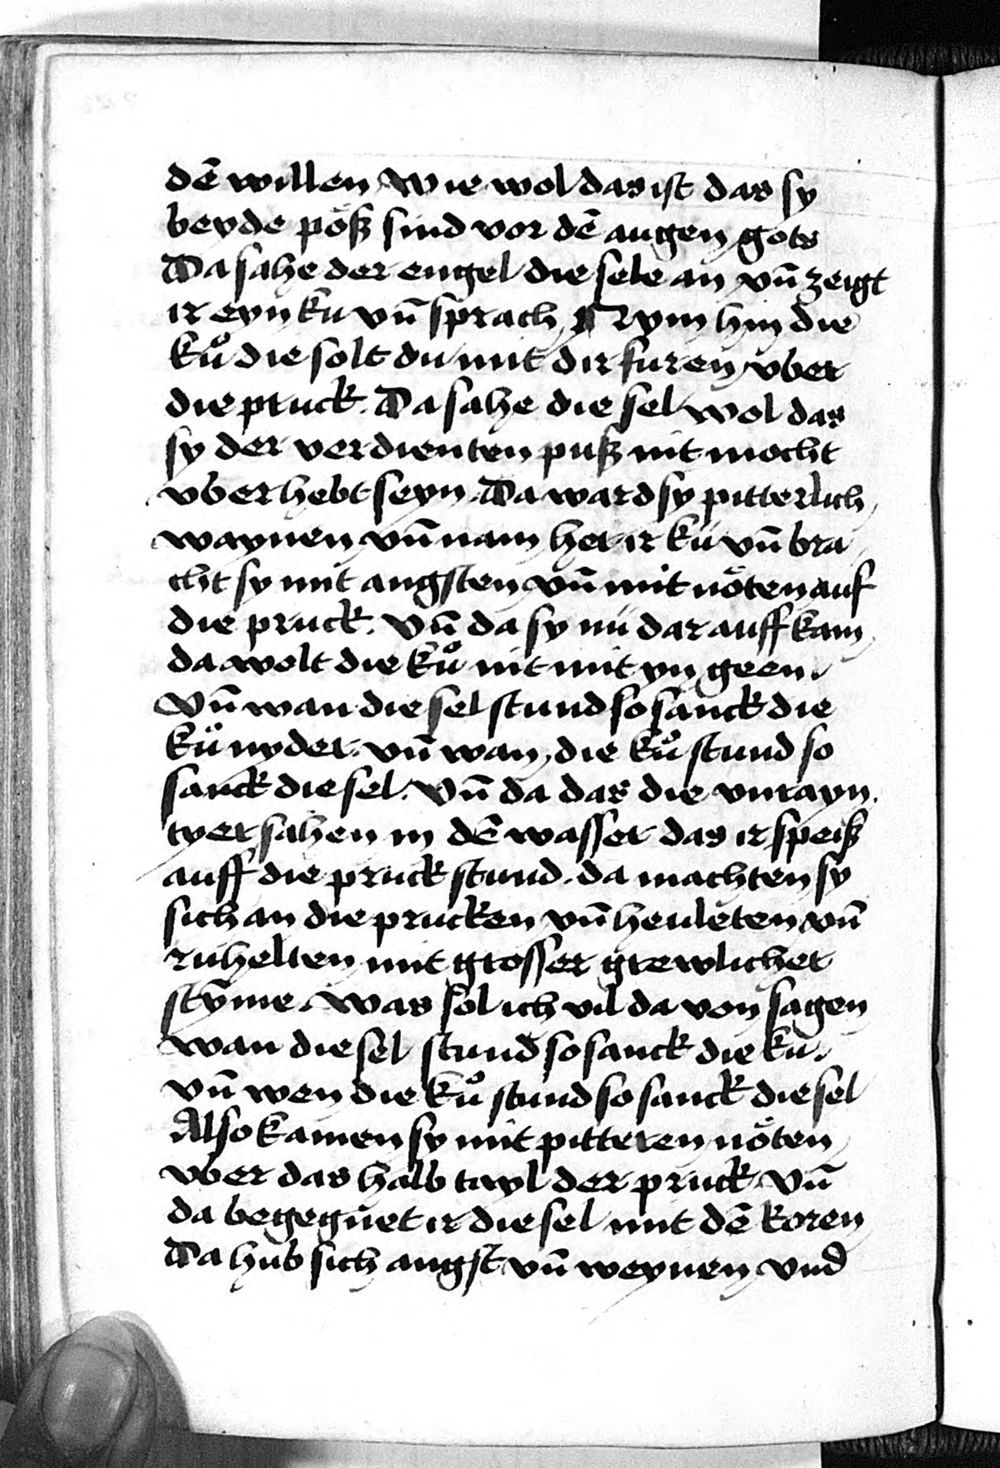 dē willen Wie wol das ist das sy
beyde pöß sind vor dē augen gots
Da sahe der engel die sele an vn̄ zeigt
ir eyn ku vn̄ sprach Nym hin die
kuͦ die solt du mit dir furen vber
die pruck. Da sahe die sel wol das
sy der verdienten puß nit mocht
vberhebt seyn. Da ward sy pitterlich
waynen vn̄ nam her ir ku vn̄ bra
cht sy mit angsten vn̄ mit nöten auf
die pruck. Vn̄ da sy nu dar auff kam
da wolt die kuͦ nit mit yn geen.
Vn̄ wan die sel stund so sanck die
kuͦ nyder. vn̄ wan die kuͦ stund so
sanck die sel. Vn̄ da das die vnrayn
tyer sahen in dē wasser das ir speiß
auff die pruck stund. da machten sy
sich an die prucken vn̄ heuleten vn̄
ruhelten mit grosser grewlicher
stȳme. Was sol ich vil da von sagen
wan die sel stund so sanck die ku.
Vn̄ wen die kuͦ stund so sanck die sel
Also kamen sy mit pitteren nöten
vber das halb tayl der pruck. Vn̄
da begegnet ir die sel mit dē koren
Da hub sich angst vn̄ weynen vnd